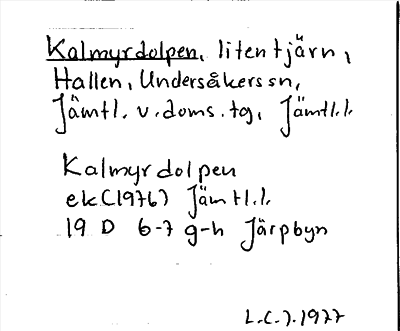 Kalmyrdolpen, liten tjärn,
Hallen, Undersåkers sn,
Jämtl. v. doms. tg, Jämtl.l.
Kalmyrdolpen
ek (1976) Jämtl.l.
19 D 6-7 g-h Järpbyn
L.C.J. 1977